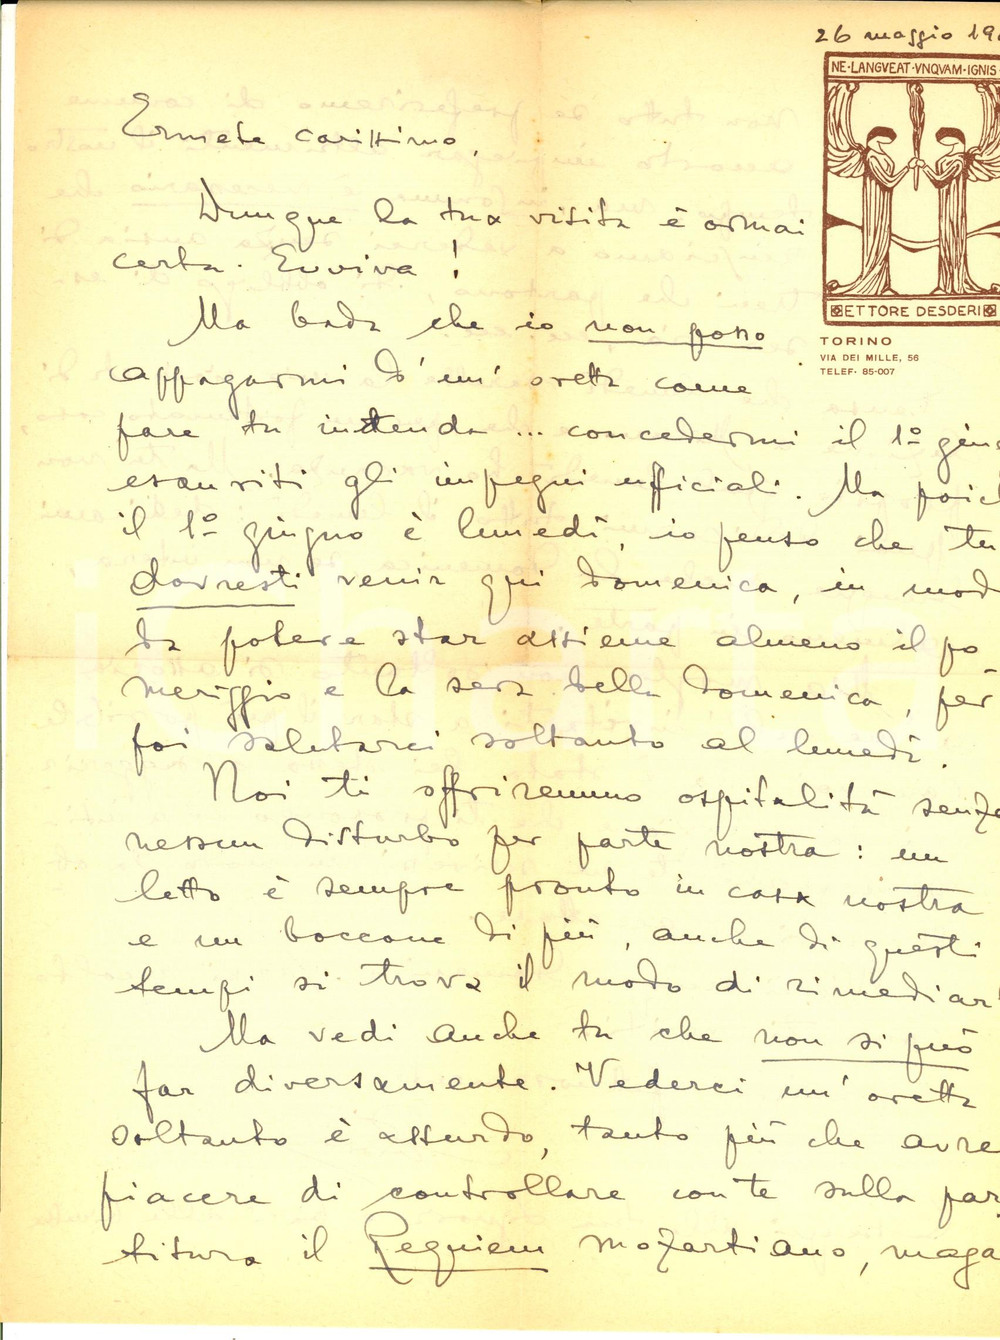 26 maggio 19
NE·LANGVEAT·VNQVAM·IGNIS·
ETTORE DESDERI
TORINO
VIA DEI MILLE, 56
TELEF· 85-007
Ermete carissimo,
Dunque la tua visita è ormai
certa. Evviva!
Ma bada che io non posso
appagarmi d'un'oretta come
fare tu intenda ... concedermi il 1º giu
esauriti gli impegni ufficiali. Ma poich
il 1º giugno è lunedì, io penso che tu
dovresti venir qui domenica, in mod
da potere star assieme almeno il po-
meriggio e la sera della domenica, per
poi salutarci soltanto al lunedì.
Noi ti offriremmo ospitalità senza
nessun disturbo per parte nostra: un
letto è sempre pronto in casa nostra
e un boccone di più, anche di questi
tempi si trova il modo di rimediar
Ma vedi anche tu che non si può
far diversamente. Vederci un'oretta
soltanto è assurdo, tanto più che avre
piacere di controllare con te sulla par-
titura il Requiem mozartiano, maga